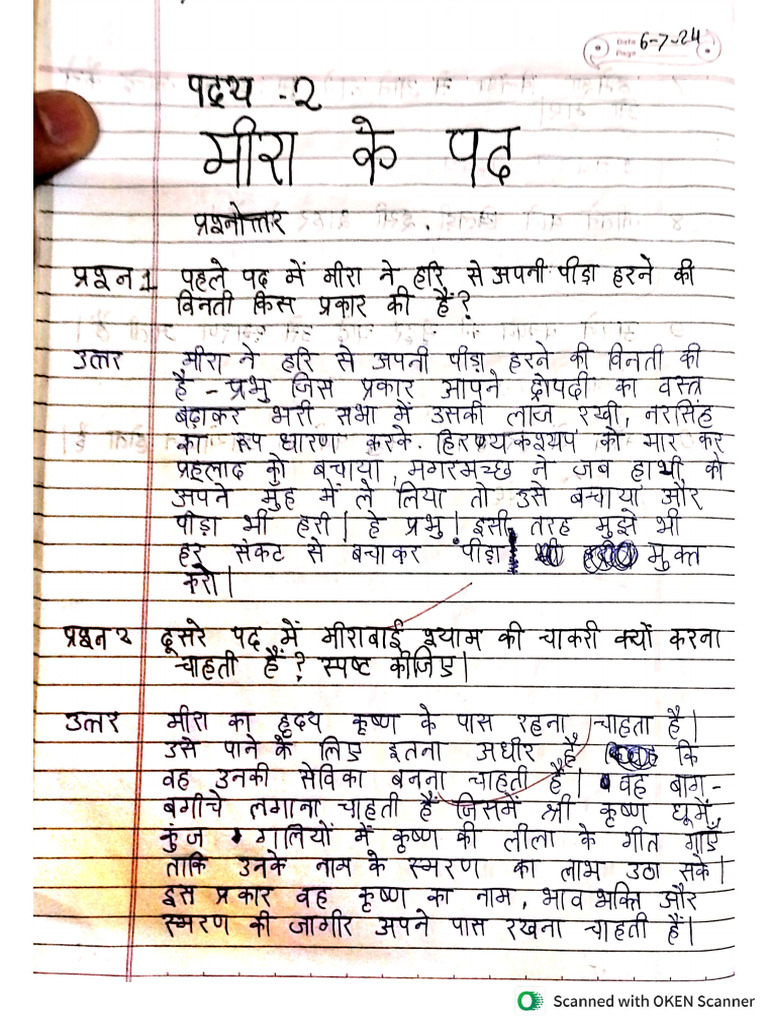 Date 6-7-24
Page
पद्रय - २
मीरा के पद
प्रश्नोत्तर
प्रश्न 1 पहले पद में मीरा ने हरि से अपनी पीड़ा हरने की
विनती किस प्रकार की हैं?
उत्तर मीरा ने हरि से अपनी पीड़ा हरने की विनती की
है - प्रभु जिस प्रकार आपने द्रोपदी का वस्त्र
बढ़ाकर भरी सभा में उसकी लाज रखी, नरसिंह
का रूप धारण करके. हिरण्यकश्यप को मार कर
प्रहलाद को बचाया, मगरमच्छ ने जब हाथी को
अपने मुँह में ले लिया तो उसे बचाया और
पीड़ा भी हरी | हे प्रभु | इसी तरह मुझे भी
हर संकट से बचाकर पीड़ा मुक्त
करो |
प्रश्न २ दूसरे पद में मीराबाई श्याम की चाकरी क्यों करना
चाहती हैं? स्पष्ट कीजिए |
उत्तर मीरा का हृदय कृष्ण के पास रहना चाहता है |
उसे पाने के लिए इतना अधीर है कि
वह उनकी सेविका बनना चाहती हैं | वह बाग -
बगीचे लगाना चाहती हैं जिसमें श्री कृष्ण घूमें,
कुंज गालियों में कृष्ण की लीला के गीत गाएँ
ताकि उनके नाम के स्मरण का लाभ उठा सके |
इस प्रकार वह कृष्ण का नाम, भाव भक्ति और
स्मरण की जागीर अपने पास रखना चाहती हैं |
Scanned with OKEN Scanner